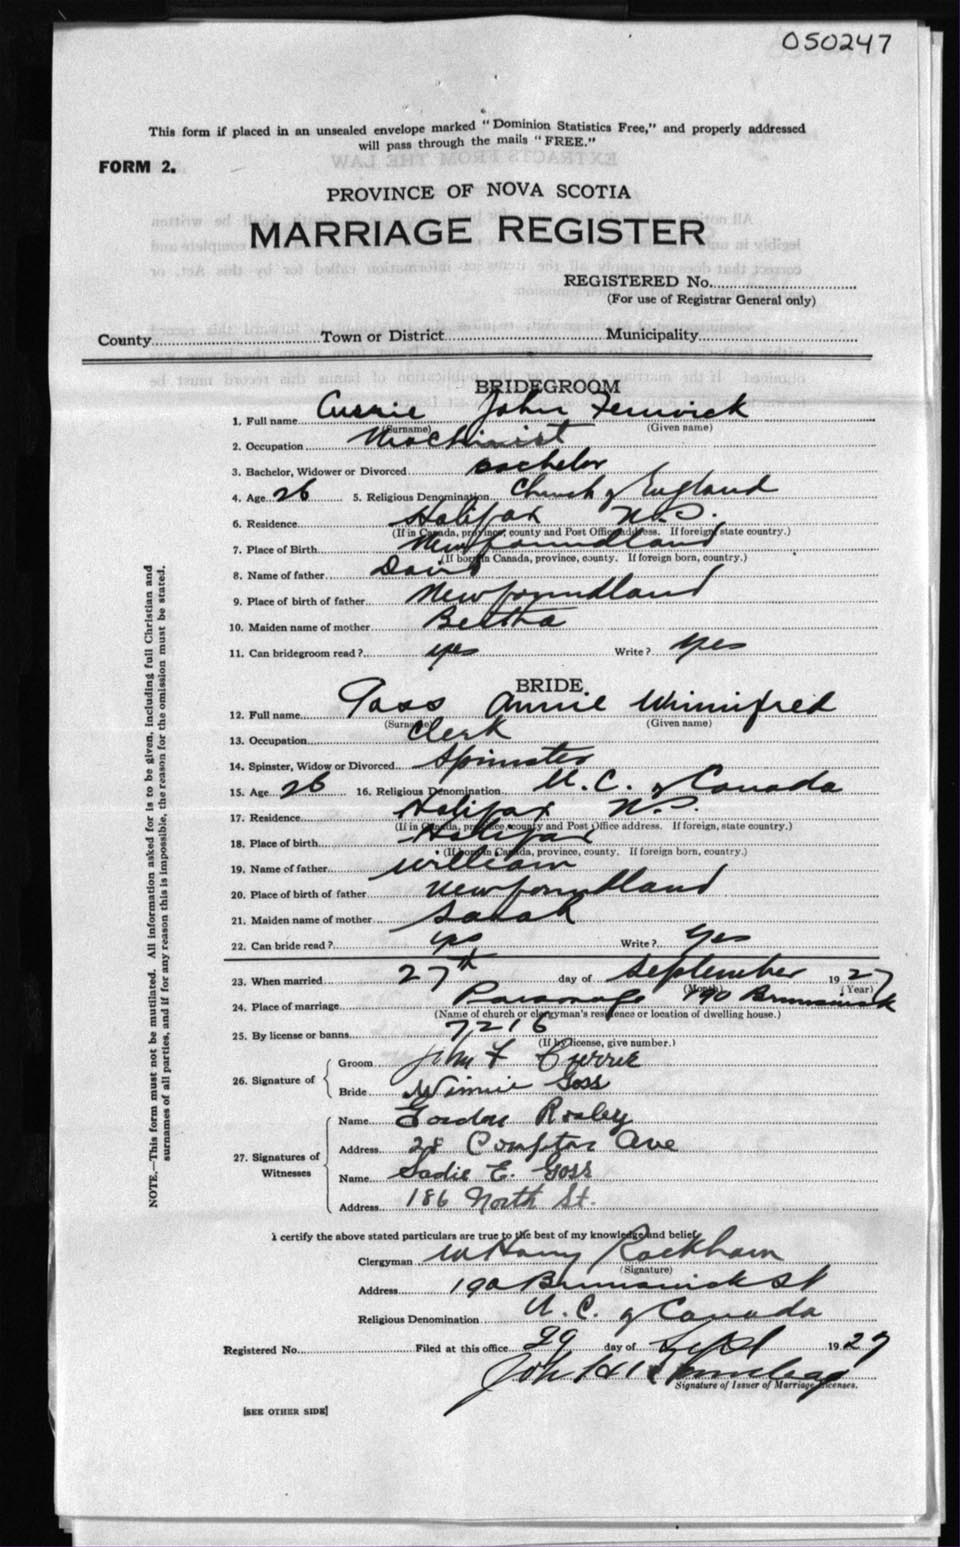 050247
This form if placed in an unsealed envelope marked "Dominion Statistics Free," and properly addressed
will pass through the mails "FREE."
FORM 2.
PROVINCE OF NOVA SCOTIA
MARRIAGE REGISTER
REGISTERED No.
(For use of Registrar General only)
County Town or District Municipality
BRIDEGROOM
1. Full name Currie John Fenwick
(Surname) (Given name)
2. Occupation Machinist
3. Bachelor, Widower or Divorced Bachelor
4. Age 26 5. Religious Denomination Church of England
6. Residence Halifax N.S.
(If in Canada, province, county and Post Office address. If foreign, state country.)
7. Place of Birth Newfoundland
(If born in Canada, province, county. If foreign born, country.)
8. Name of father David
9. Place of birth of father Newfoundland
10. Maiden name of mother Bertha
11. Can bridegroom read? yes Write? yes
BRIDE
12. Full name Goss Annie Winnifred
(Surname) (Given name)
13. Occupation Clerk
14. Spinster, Widow or Divorced Spinster
15. Age 26 16. Religious Denomination U. C. of Canada
17. Residence Halifax N.S.
(If in Canada, province, county and Post Office address. If foreign, state country.)
18. Place of birth Halifax
(If born in Canada, province, county. If foreign born, country.)
19. Name of father William
20. Place of birth of father Newfoundland
21. Maiden name of mother Sarah
22. Can bride read? yes Write? yes
23. When married 27th day of September 1927
(Month) (Year)
24. Place of marriage Parsonage 190 Brunswick
(Name of church or clergyman's residence or location of dwelling house.)
25. By license or banns 7216
(If by license, give number.)
26. Signature of Groom John F Currie
Bride Winnie Goss
27. Signatures of Witnesses Name Gordon
Address 28 Compton Ave
Name Sadie E. Goss
Address 186 North St.
I certify the above stated particulars are true to the best of my knowledge and belief.
Clergyman W Harry Rackham
(Signature)
Address 190 Brunswick St
Religious Denomination U. C. of Canada
Registered No. Filed at this office 29 day of Sept 1927
Signature of Issuer of Marriage Licenses.
[SEE OTHER SIDE]
NOTE.—This form must not be mutilated. All information asked for is to be given, including full Christian and
surnames of all parties, and if for any reason this is impossible, the reason for the omission must be stated.